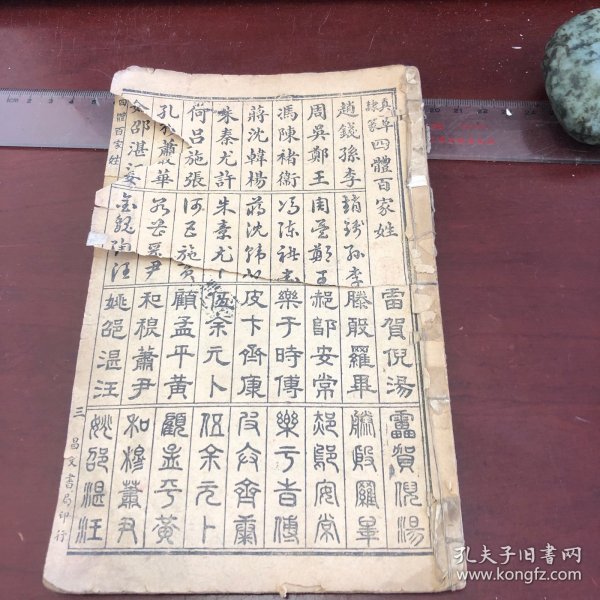 真草隸篆
四體百家姓
趙錢孫李
周吳鄭王
馮陳褚衛
蔣沈韓楊
朱秦尤許
何呂施張
孔
蕭
華
邵湛
趙錢孫李
周吳鄭王
馮陳褚
蔣沈韓
朱秦尤
何呂施
尹
汪
雷賀倪湯
滕殷羅畢
郝鄔安常
樂于時傅
皮卞齊康
伍余元卜
顧孟平黃
和穆蕭尹
姚邵湛汪
雷賀倪湯
滕殷羅畢
郝鄔安常
樂于時傅
皮卞齊康
伍余元卜
顧孟平黃
和穆蕭尹
姚邵湛汪
四體百家姓
三
昌文書局印行
孔夫子旧书网
www.kongfz.com